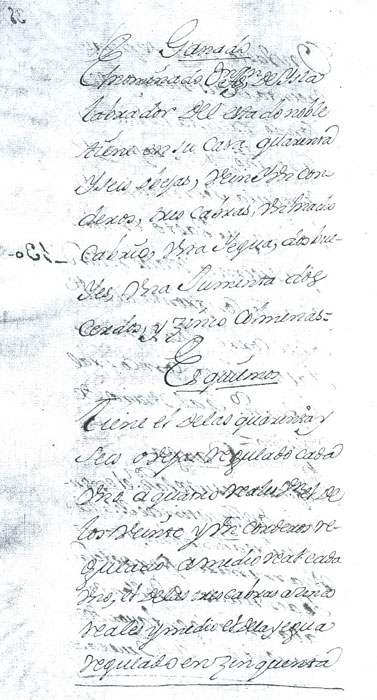 Ganado
El nominado Dn de Isla
labrador del estado noble
tiene en su casa quarenta
y seis obejas, veinte y un con
deros, tres cabras, un macho
cabrio, una Yegua, dos bue-
yes, una Jumenta dos
cerdos, y zinco colmenas=
-130-
Esquilmos
Tiene el de las quarenta y
seis obejas regulado cada
uno a quatro reales Vn el de
los veinte y un corderos re-
gulado a medio real cada
uno, el de las tres cabras a cinco
reales y medio el de la yegua
regulado en zinquenta